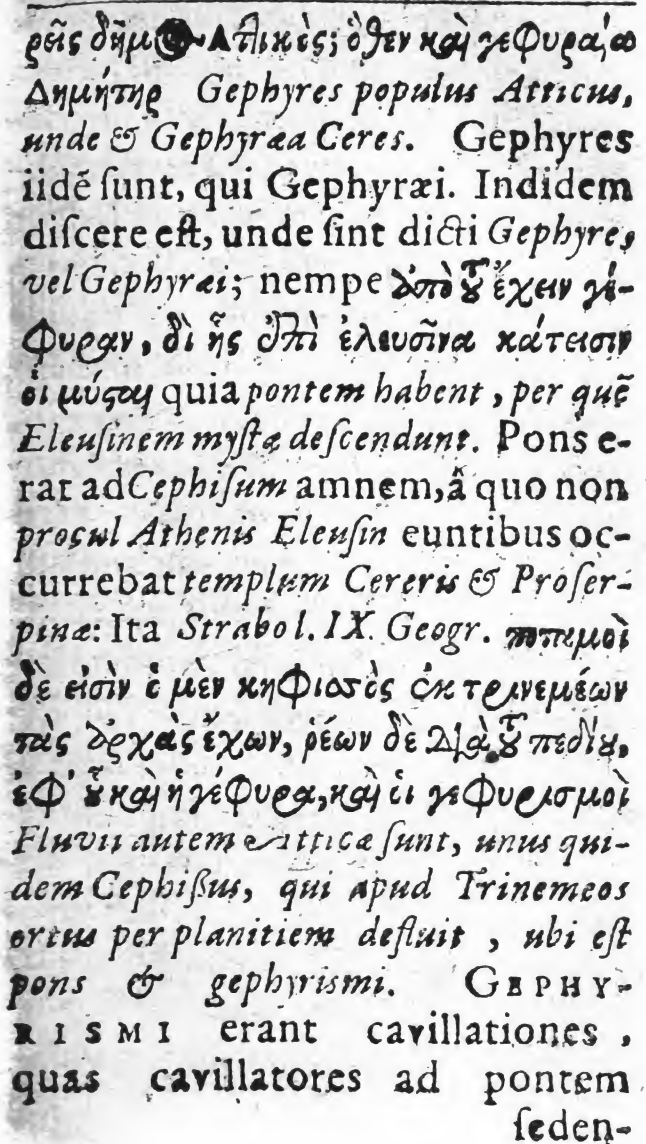 ρεῖς δῆμος Ἀττικὸς; ὅθεν καὶ γεφυραία
Δημήτηρ Gephyres populus Atticus,
unde & Gephyræa Ceres. Gephyres
iidē ſunt, qui Gephyræi. Indidem
diſcere eſt, unde ſint dicti Gephyres
vel Gephyræi; nempe ἀπὸ τοῦ ἔχειν γέ-
φυραν, δι ἧς ἐπὶ ἐλευσῖνα κάτεισιν
οἱ μύσται quia pontem habent, per quē
Eleuſinem myſtæ deſcendunt. Pons e-
rat ad Cephiſum amnem, â quo non
procul Athenis Eleuſin euntibus oc-
currebat templum Cereris & Proſer-
pinæ: Ita Strabo l. IX. Geogr. ποταμοὶ
δὲ εἰσὶν ὁ μὲν κηφισσὸς ἐκ τρινεμέων
τὰς ἀρχὰς ἔχων, ῥέων δὲ διὰ τοῦ πεδίου,
ἐφ' οὗ καὶ ἡ γέφυρα, καὶ οἱ γεφυρισμοὶ
Fluvii autem Atticæ ſunt, unus qui-
dem Cephiſſus, qui apud Trinemeos
ortus per planitiem defluit, ubi eſt
pons & gephyrismi. GEPHY-
RISMI erant cavillationes,
quas cavillatores ad pontem
ſeden-